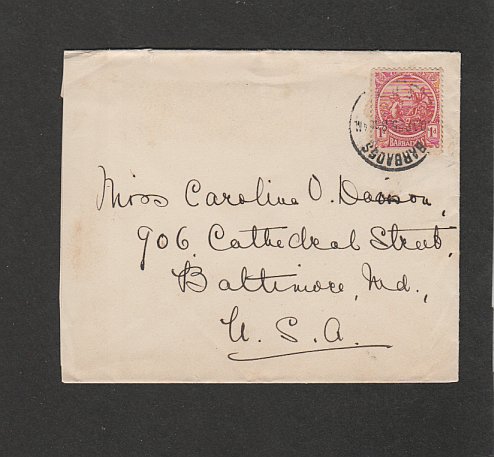 1d 1d
BARBADOS
BARBADOS
Miss Caroline O. Davison,
906 Cathedral Street,
Baltimore, Md.,
U. S. A.